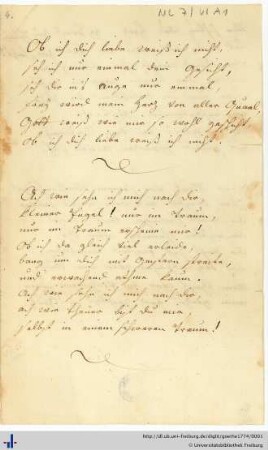 6.
NL 7/VI A1
Ob ich dich liebe weiß ich nicht.
Seh ich nur einmal dein Gesicht,
Seh dir ins Auge nur einmal,
Frey wird mein Herz von aller Quaal,
Gott weiß wie mir so wohl geschieht
Ob ich dich liebe weiß ich nicht.
Ach wie sehn ich mich nach dir,
Kleiner Engel! nur im Traum,
nur im Traum erscheine mir!
Ob ich da gleich viel erleide,
bang um dich mit Geistern streite,
und erwachend athme kaum.
Ach wie sehn ich mich nach dir,
ach wie theuer bist du mir,
selbst in einem schweren Traum!
http://dl.ub.uni-freiburg.de/diglit/goethe1774/0001
© Universitätsbibliothek Freiburg